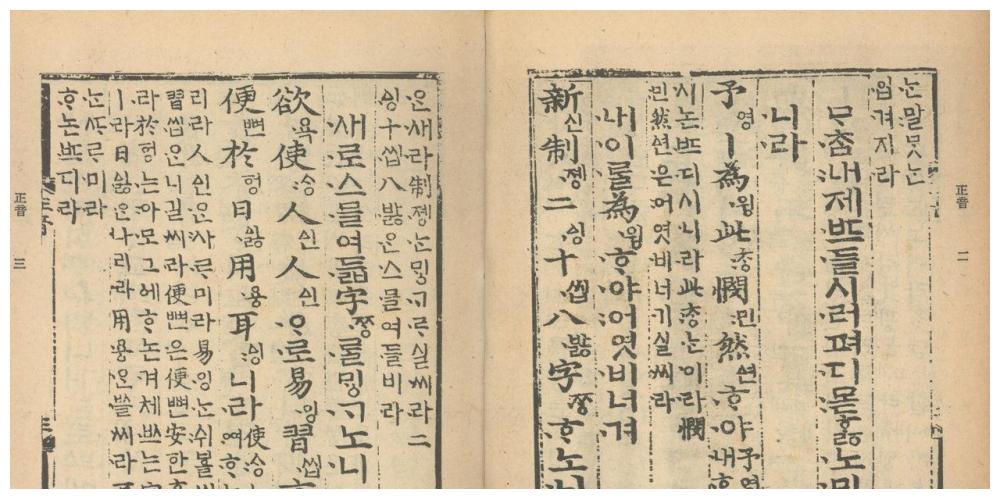 ᄂᆞᆫ말ᄆᆞᆺᄂᆞᆫ
입겨지라
ᄆᆞᄎᆞᆷ내제ᄠᅳ들시러펴디몯ᄒᆞᇙ노미
니라
予영ㅣ爲윙此ᄎᆞᆼ憫민然ᅀᅧᆫᄒᆞ야予영
내ᄒᆞ
시논ᄠᅳ디시니라此ᄎᆞᆼᄂᆞᆫ이라憫
민然ᅀᅧᆫ은어엿비너기실씨라
내이ᄅᆞᆯ爲윙ᄒᆞ야어엿비너겨
新신制졩二ᅀᅵᆼ十씹八바ᇙ字ᄍᆞᆼᄒᆞ노니
正音 二
ᄋᆞᆫ새라制졩ᄂᆞᆫᄆᆡᇰᄀᆞᄅᆞ실씨라二
ᅀᅵᆼ十씹八바ᇙ은스믈여들비라
새로스믈여듧字ᄍᆞᆼᄅᆞᆯᄆᆡᇰᄀᆞ노니
欲욕使ᄉᆞᆼ人ᅀᅵᆫ人ᅀᅵᆫᄋᆞ로易잉習씹
便뼌於ᅙᅥᆼ日ᅀᅵᇙ用요ᇰ耳ᅀᅵᆼ니라使ᄉᆞᆼ
여ᄒᆞ
리라人ᅀᅵᆫᄋᆞᆫ사ᄅᆞ미라易잉ᄂᆞᆫ쉬ᄫᅳᆯ씨
習씹은니길씨라便뼌은便뼌安한ᄒᆞ
라於ᅙᅥᆼ는아모그에ᄒᆞ논겨체ᄡᅳ는字
ㅣ라日ᅀᅵᇙᄋᆞᆫ나리라用요ᇰᄋᆞᆫᄡᅳᆯ씨라
ᄂᆞᆫᄯᆞᄅᆞ미라
ᄒᆞ논ᄠᅳ디라
正音 三